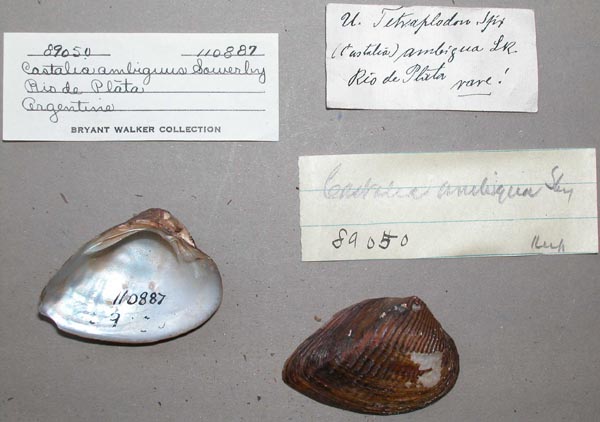 89050 110887
Castalia ambiguus Sowerby
Rio de Plata
Argentine
BRYANT WALKER COLLECTION
U. Tetraplodon Spix
(Castalia) ambigua Lk.
Rio de Plata
rare!
Castalia ambiqua Sby
89050
110887